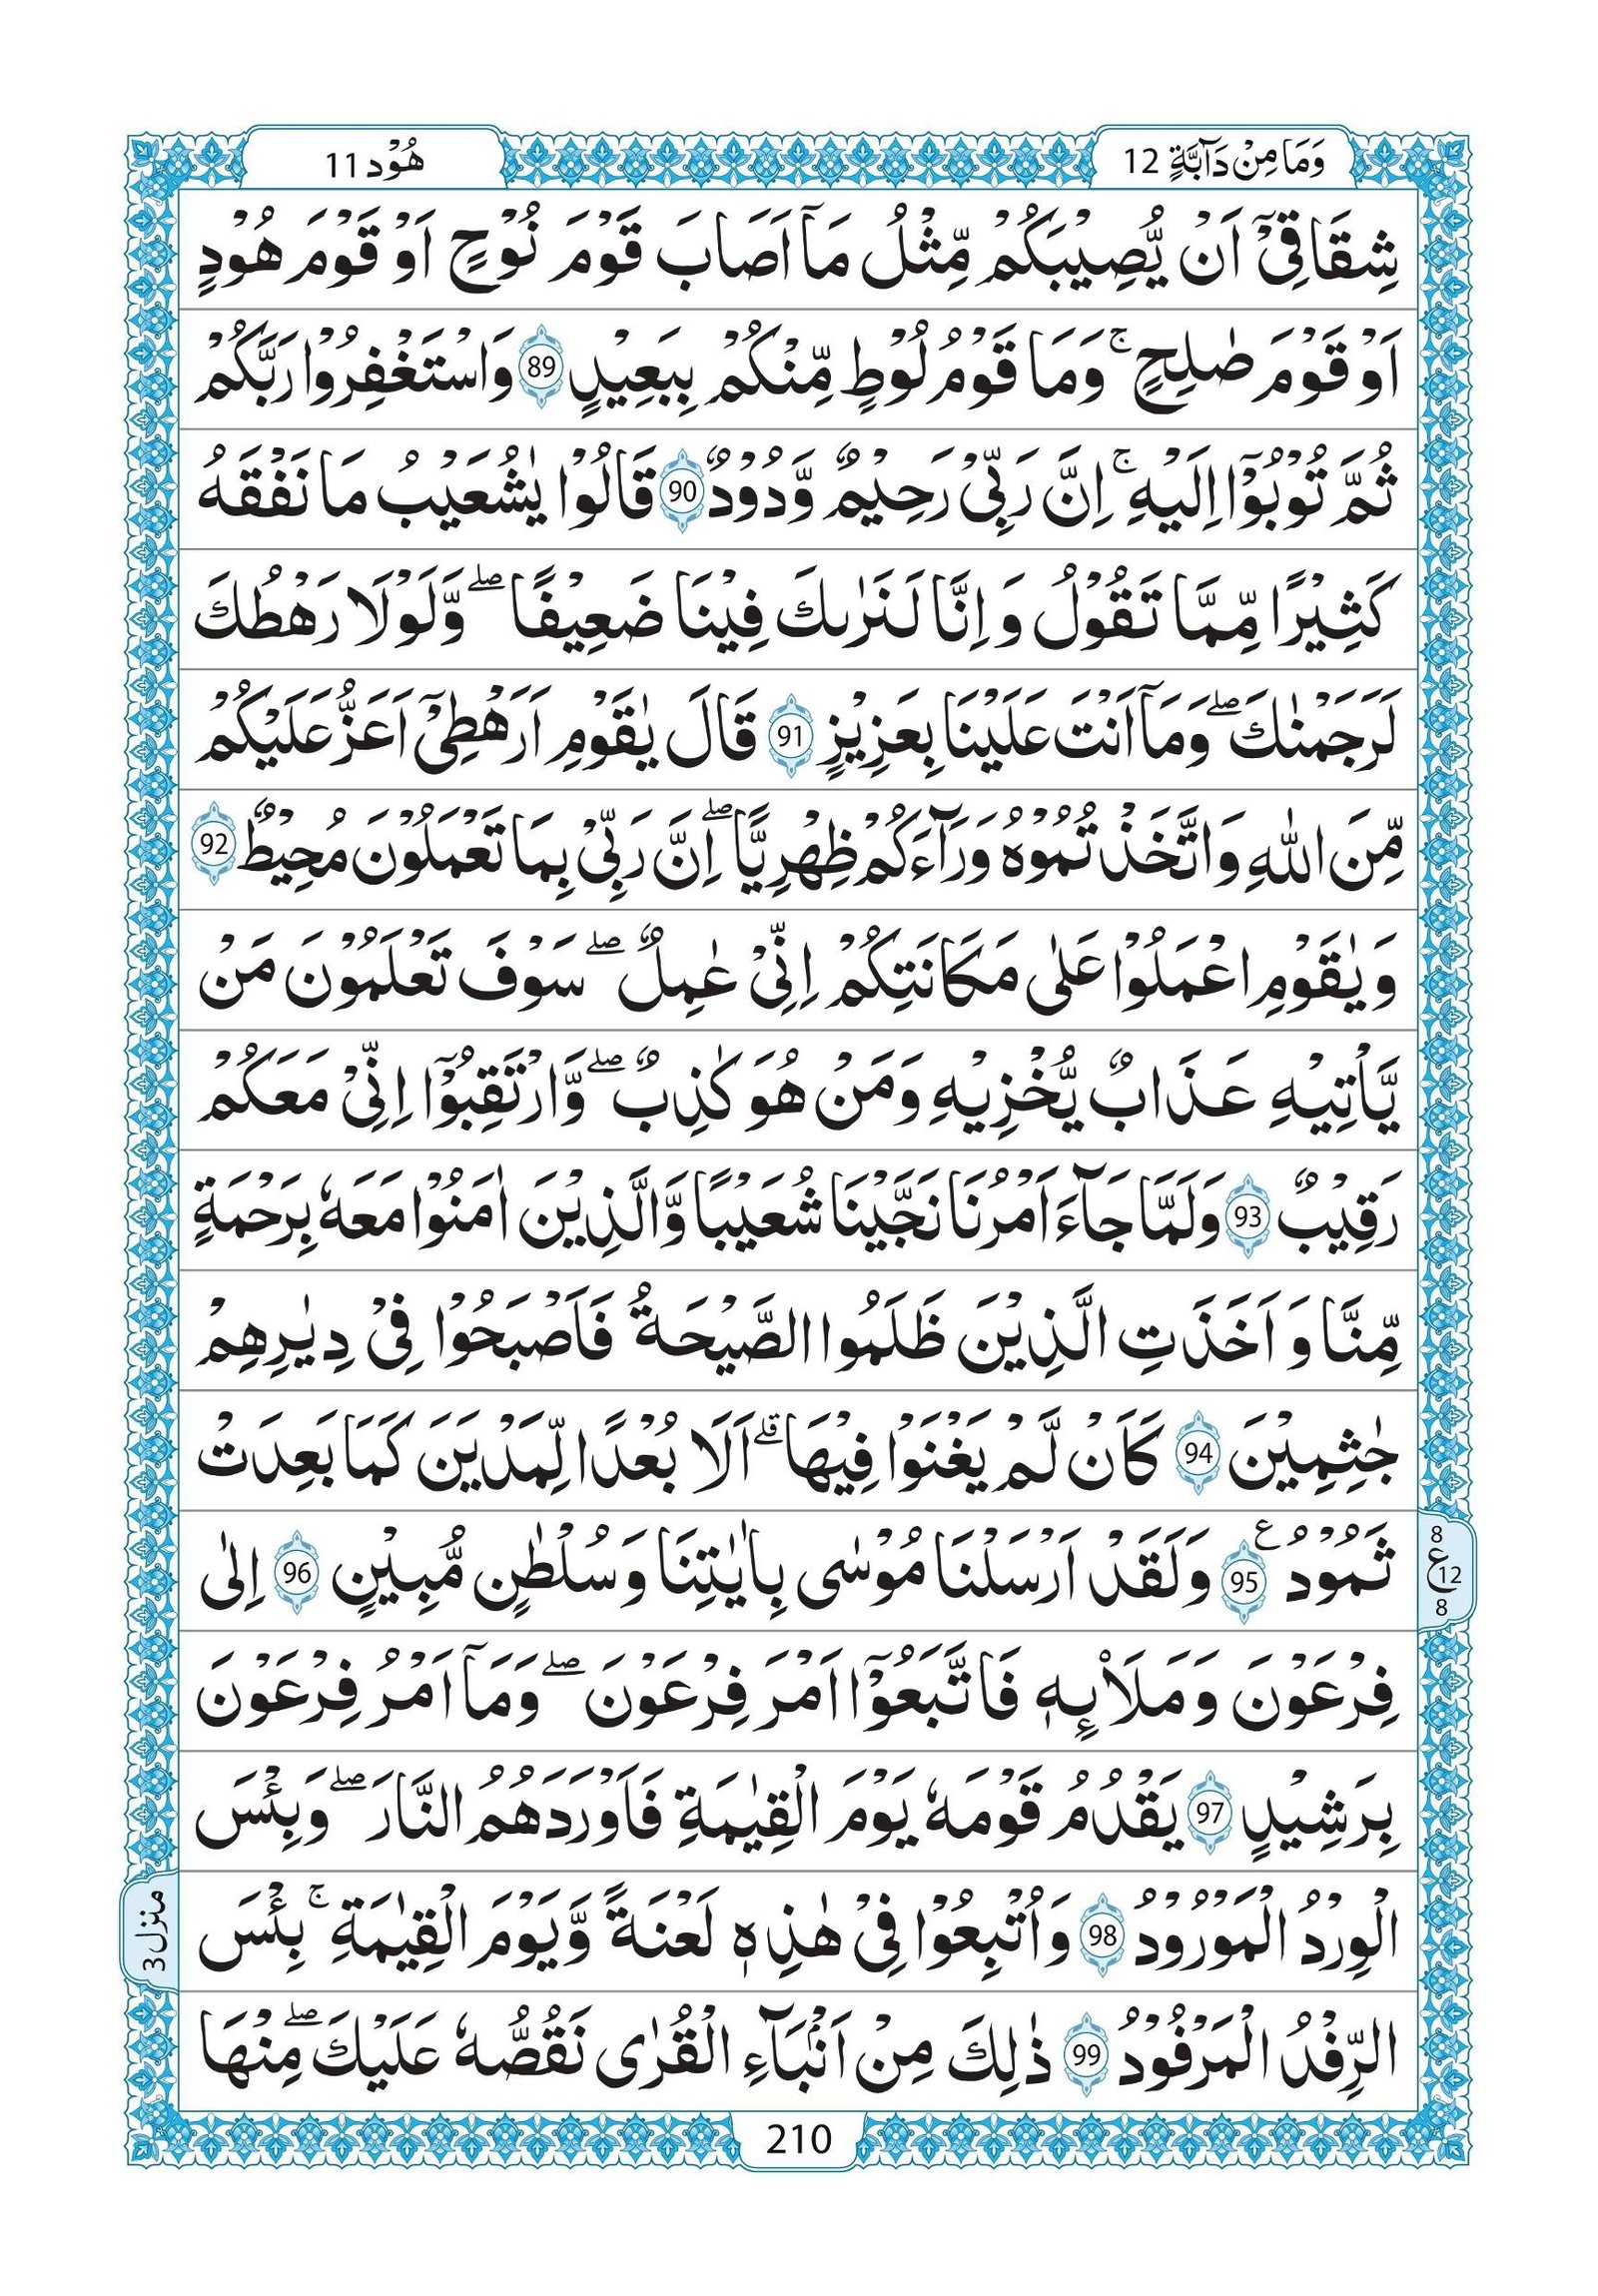 وَمَا مِنْ دَآبَّةٍ 12
هُوْد 11
شِقَاقِیْۤ اَنْ یُّصِیْبَكُمْ مِّثْلُ مَاۤ اَصَابَ قَوْمَ نُوْحٍ اَوْ قَوْمَ هُوْدٍ
اَوْ قَوْمَ صٰلِحٍ ۚ وَمَا قَوْمُ لُوْطٍ مِّنْكُمْ بِبَعِیْدٍ 89 وَاسْتَغْفِرُوْا رَبَّكُمْ
ثُمَّ تُوْبُوْۤا اِلَیْهِ ۚ اِنَّ رَبِّیْ رَحِیْمٌ وَّدُوْدٌ 90 قَالُوْا یٰشُعَیْبُ مَا نَفْقَهُ
كَثِیْرًا مِّمَّا تَقُوْلُ وَ اِنَّا لَنَرٰىكَ فِیْنَا ضَعِیْفًا ۖ وَّلَوْلَا رَهْطُكَ
لَرَجَمْنٰكَ ۖ وَمَاۤ اَنْتَ عَلَیْنَا بِعَزِیْزٍ 91 قَالَ یٰقَوْمِ اَرَهْطِیْۤ اَعَزُّ عَلَیْكُمْ
مِّنَ اللّٰهِ وَاتَّخَذْتُمُوْهُ وَرَآءَكُمْ ظِهْرِیًّا ۖ اِنَّ رَبِّیْ بِمَا تَعْمَلُوْنَ مُحِیْطٌ 92
وَیٰقَوْمِ اعْمَلُوْا عَلٰی مَكَانَتِكُمْ اِنِّیْ عٰمِلٌ ۖ سَوْفَ تَعْلَمُوْنَ مَنْ
یَّاْتِیْهِ عَذَابٌ یُّخْزِیْهِ وَمَنْ هُوَ كٰذِبٌ ۖ وَّارْتَقِبُوْۤا اِنِّیْ مَعَكُمْ
رَقِیْبٌ 93 وَلَمَّا جَآءَ اَمْرُنَا نَجَّیْنَا شُعَیْبًا وَّالَّذِیْنَ اٰمَنُوْا مَعَهٗ بِرَحْمَةٍ
مِّنَّا وَ اَخَذَتِ الَّذِیْنَ ظَلَمُوا الصَّیْحَةُ فَاَصْبَحُوْا فِیْ دِیٰرِهِمْ
جٰثِمِیْنَ 94 كَاَنْ لَّمْ یَغْنَوْا فِیْهَا ۗ اَلَا بُعْدًا لِّمَدْیَنَ كَمَا بَعِدَتْ
ثَمُوْدُ ع 95 وَلَقَدْ اَرْسَلْنَا مُوْسٰی بِاٰیٰتِنَا وَسُلْطٰنٍ مُّبِیْنٍ 96 اِلٰی
8
ع 12
8
فِرْعَوْنَ وَمَلَا۟ئِهٖ فَاتَّبَعُوْۤا اَمْرَ فِرْعَوْنَ ۖ وَمَاۤ اَمْرُ فِرْعَوْنَ
بِرَشِیْدٍ 97 یَقْدُمُ قَوْمَهٗ یَوْمَ الْقِیٰمَةِ فَاَوْرَدَهُمُ النَّارَ ۖ وَبِئْسَ
الْوِرْدُ الْمَوْرُوْدُ 98 وَاُتْبِعُوْا فِیْ هٰذِهٖ لَعْنَةً وَّیَوْمَ الْقِیٰمَةِ ۚ بِئْسَ
منزل 3
الرِّفْدُ الْمَرْفُوْدُ 99 ذٰلِكَ مِنْ اَنْۢبَآءِ الْقُرٰی نَقُصُّهٗ عَلَیْكَ ۖ مِنْهَا
210